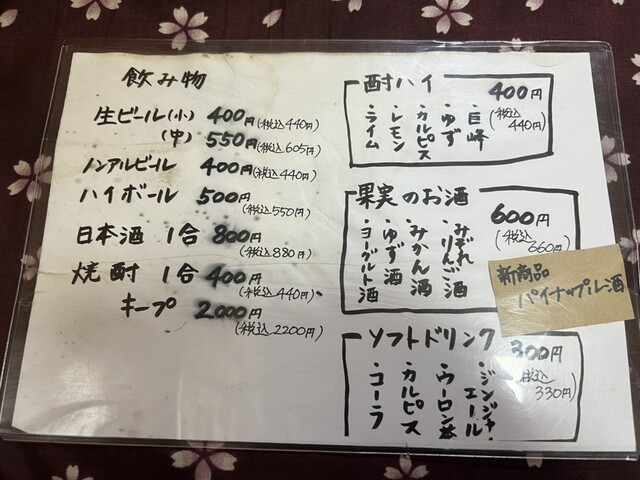 飲み物
生ビール(小) 400円(税込440円)
(中) 550円(税込605円)
ノンアルビール 400円(税込440円)
ハイボール 500円(税込550円)
日本酒 1合 800円(税込880円)
焼酎 1合 400円(税込440円)
キープ 2000円(税込2200円)
酎ハイ 400円(税込440円)
・巨峰
・ゆず
・カルピス
・レモン
・ライム
果実のお酒 600円(税込660円)
・みぞれりんご酒
・みかん酒
・ゆず酒
・ヨーグルト酒
新商品
パイナップル酒
ソフトドリンク 300円(税込330円)
・ジンジャーエール
・ウーロン茶
・カルピス
・コーラ